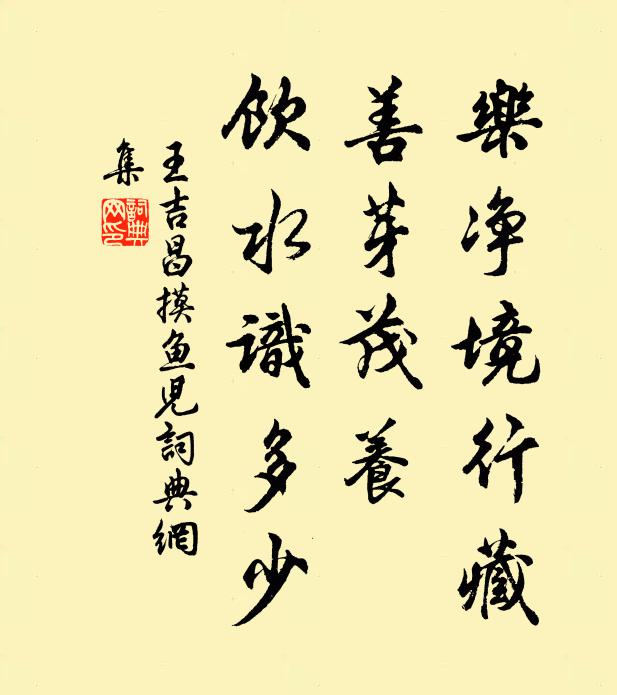 樂净境行藏
善芽茂養
飲水識多少
王吉昌摸鱼児詞典網
集
詞典网印